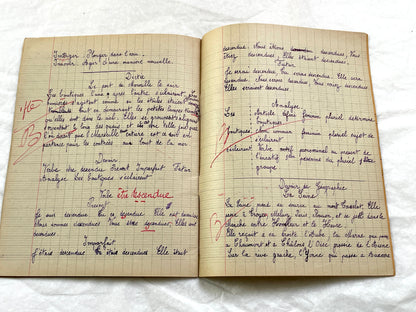 Plonger dans l'eau.
Innover Agir d'une manière nouvelle.
Dictée
Le port se réveille le soir
Les boutiques l'une après l'autre s'éclairent. Les
lumières s'agitent comme si les étoiles étaient
tombées
qu'elles ont dans le ciel. Elles se
le long des quais et
l'on dirait que l'étincelle entière est
au bas de la mer
Devoir
Verbe être descendue Présent Imparfait Futur
Analyse Les boutiques s'éclairent
Verbe être descendue
Présent
Je suis descendue. Tu es descendue. Elle est descendue
Nous sommes descendues. Vous êtes descendues. Elles sont
descendues.
Imparfait
J'étais descendue Tu étais descendue. Elle était
descendue. Nous étions descendues, Vous
étiez descendues, Elles étaient descendues.
Futur
Je serai descendue, Tu seras descendue. Elle sera
descendue, Nous serons descendues, Vous serez descendues
Elles seront descendues.
Analyse
Les Article défini féminin pluriel détermine
boutiques
boutiques nom commun féminin pluriel sujet de
s'éclairent
s'éclairent Verbe pronominal au présent de
l'indicatif 3ème personne du pluriel 1er
groupe.
Devoir de Géographie
La Seine
La Seine prend sa source au mont Tasselot. Elle
arrose Troyes, Melun, Paris, Rouen, et se jette dans la
Manche entre Honfleur et le Havre.
Elle reçoit à sa droite l'Aube, la Marne qui passe
à Chaumont et à Châlons, l'Oise grossie de l'Aisne
Sur la rive gauche, l'Yonne qui passe à Auxerre